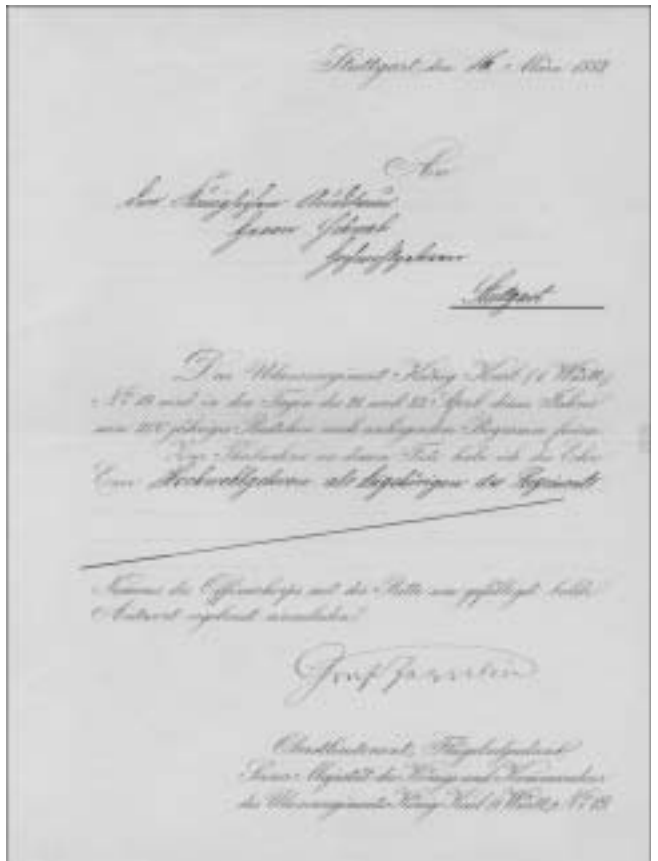 Stuttgart den 16. März 1883
An
den Königlichen
Herrn
Hochwohlgeboren
Stuttgart
Das Ulanenregiment König Karl (1. Württ.)
No 19 wird in den Tagen des 21. und 22. April dieses Jahres
sein 200 jähriges Bestehen nach anliegendem Programm feiern.
Zur Theilnahme an diesem Feste habe ich die Ehre
Euer Hochwohlgeboren als Angehörigen des Regiments
Namens des Offizierkorps mit der Bitte um gefälligst baldige
Antwort ergebenst einzuladen.
Graf Zeppelin
Oberstlieutenant, Flügeladjutant
Seiner Majestät des Königs und Kommandeur
des Ulanenregiments König Karl (1. Württ.) No 19.